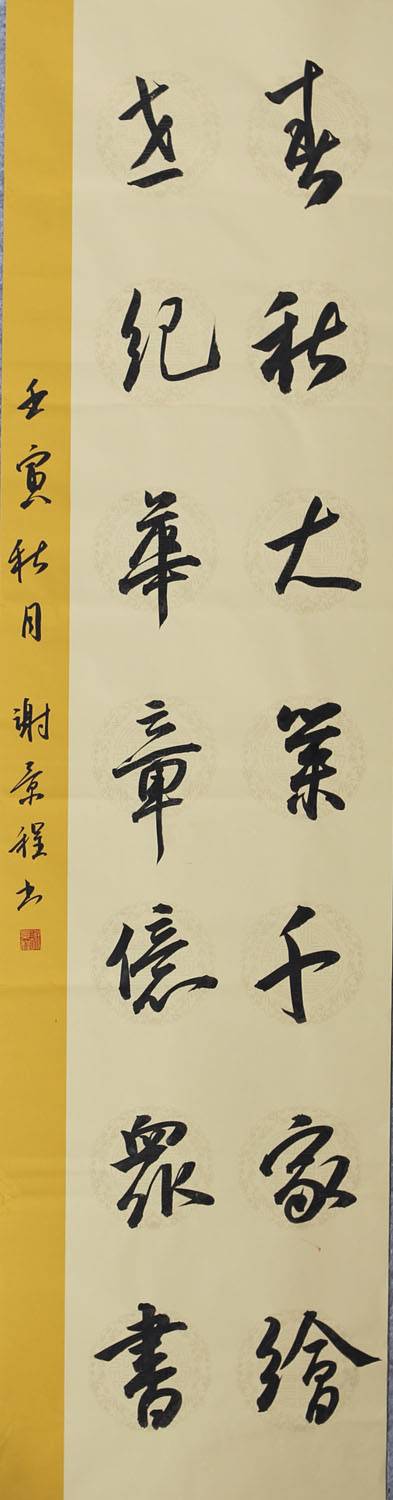 春秋大業千家繪
世紀華章億眾書
壬寅秋月 謝景程书